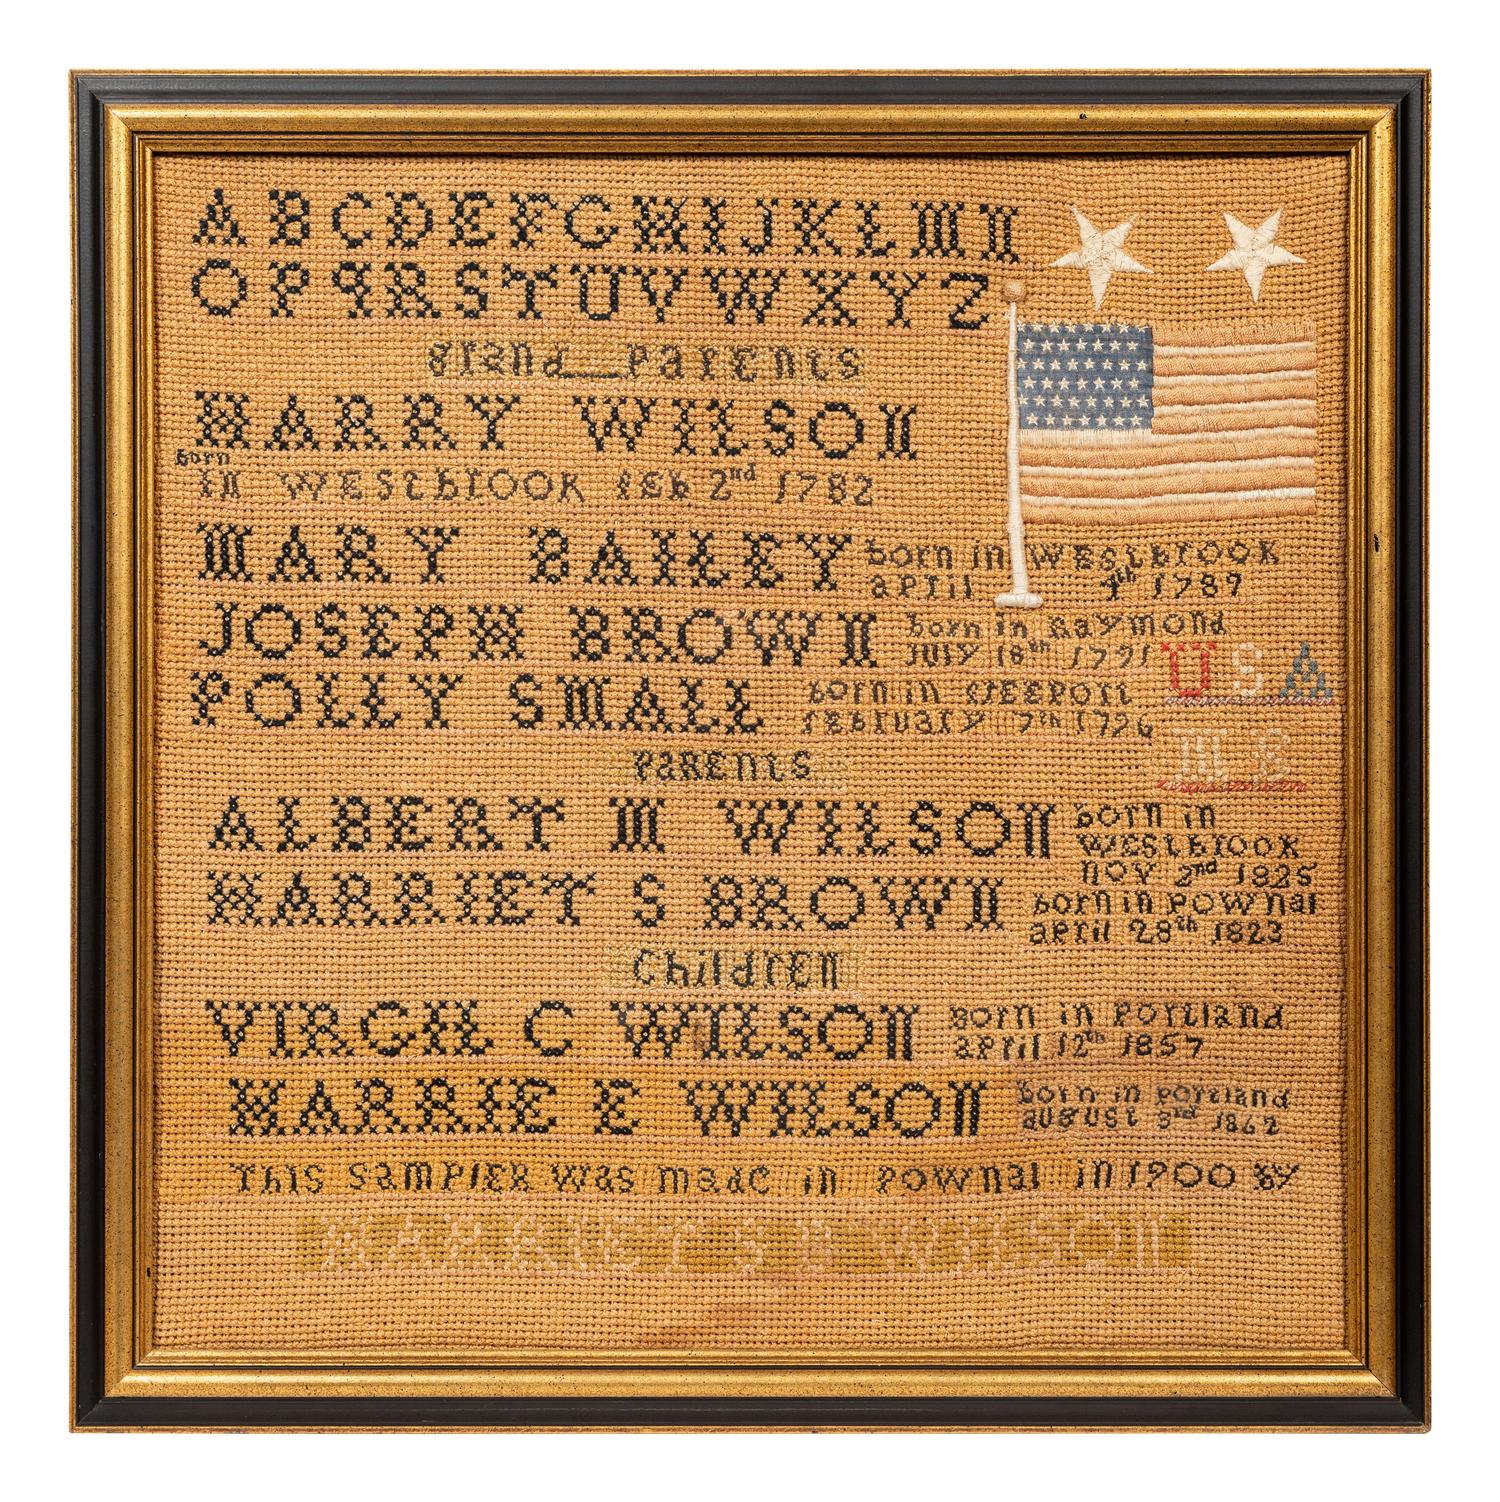 A B C D E F G H I J K L M N
O P Q R S T U V W X Y Z
Grand Parents
HARRY WILSON
Born
in Westbrook Feb 2nd 1782
MARY BAILEY born in Westbrook
april 4th 1787
JOSEPH BROWN born in Raymond
July 18th 1791
POLLY SMALL born in freeport
february 7th 1796
U S A
M E
Parents
ALBERT M WILSON born in
Westbrook
nov 2nd 1825
HARRIET S BROWN born in Pownal
april 28th 1823
Children
VIRGIL C WILSON Born in Portland
april 12th 1857
HARRIE E WILSON born in Portland
august 3rd 1862
This sampler was made in Pownal in 1900 by
HARRIET S B WILSON